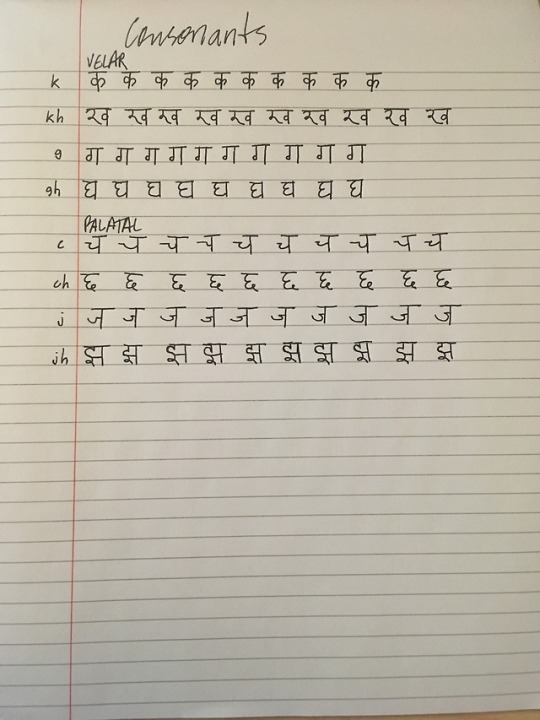 Consonants
VELAR
k क क क क क क क क क क
kh ख ख ख ख ख ख ख ख ख ख
g ग ग ग ग ग ग ग ग ग ग
gh घ घ घ घ घ घ घ घ घ
PALATAL
c च च च च च च च च च च
ch छ छ छ छ छ छ छ छ छ छ
j ज ज ज ज ज ज ज ज ज ज
jh झ झ झ झ झ झ झ झ झ झ